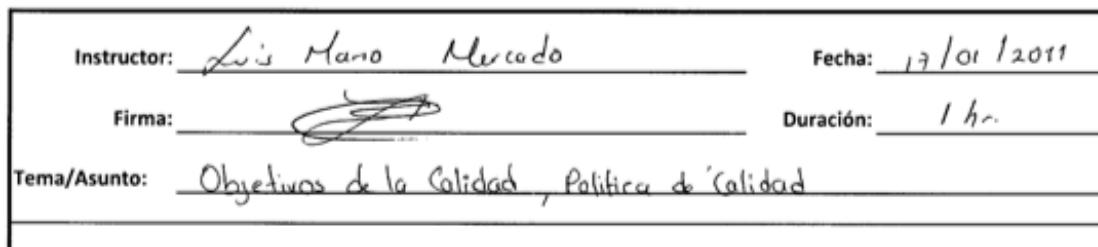 Instructor: Luis Mario Mercado Fecha: 17/01/2011
Firma: Duración: 1 hr.
Tema/Asunto: Objetivos de la Calidad, Politica de Calidad